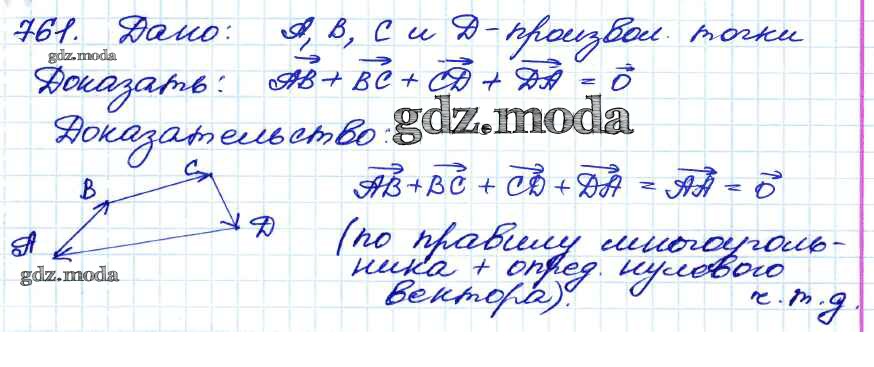 761. Дано: A, B, C и D - произвол. точки
gdz.moda
Доказать: AB + BC + CD + DA = 0
Доказательство:
gdz.moda
AB + BC + CD + DA = AA = 0
A B C D
gdz.moda
(по правилу многоуголь-
ника + опред. нулевого
вектора).
ч.т.д.